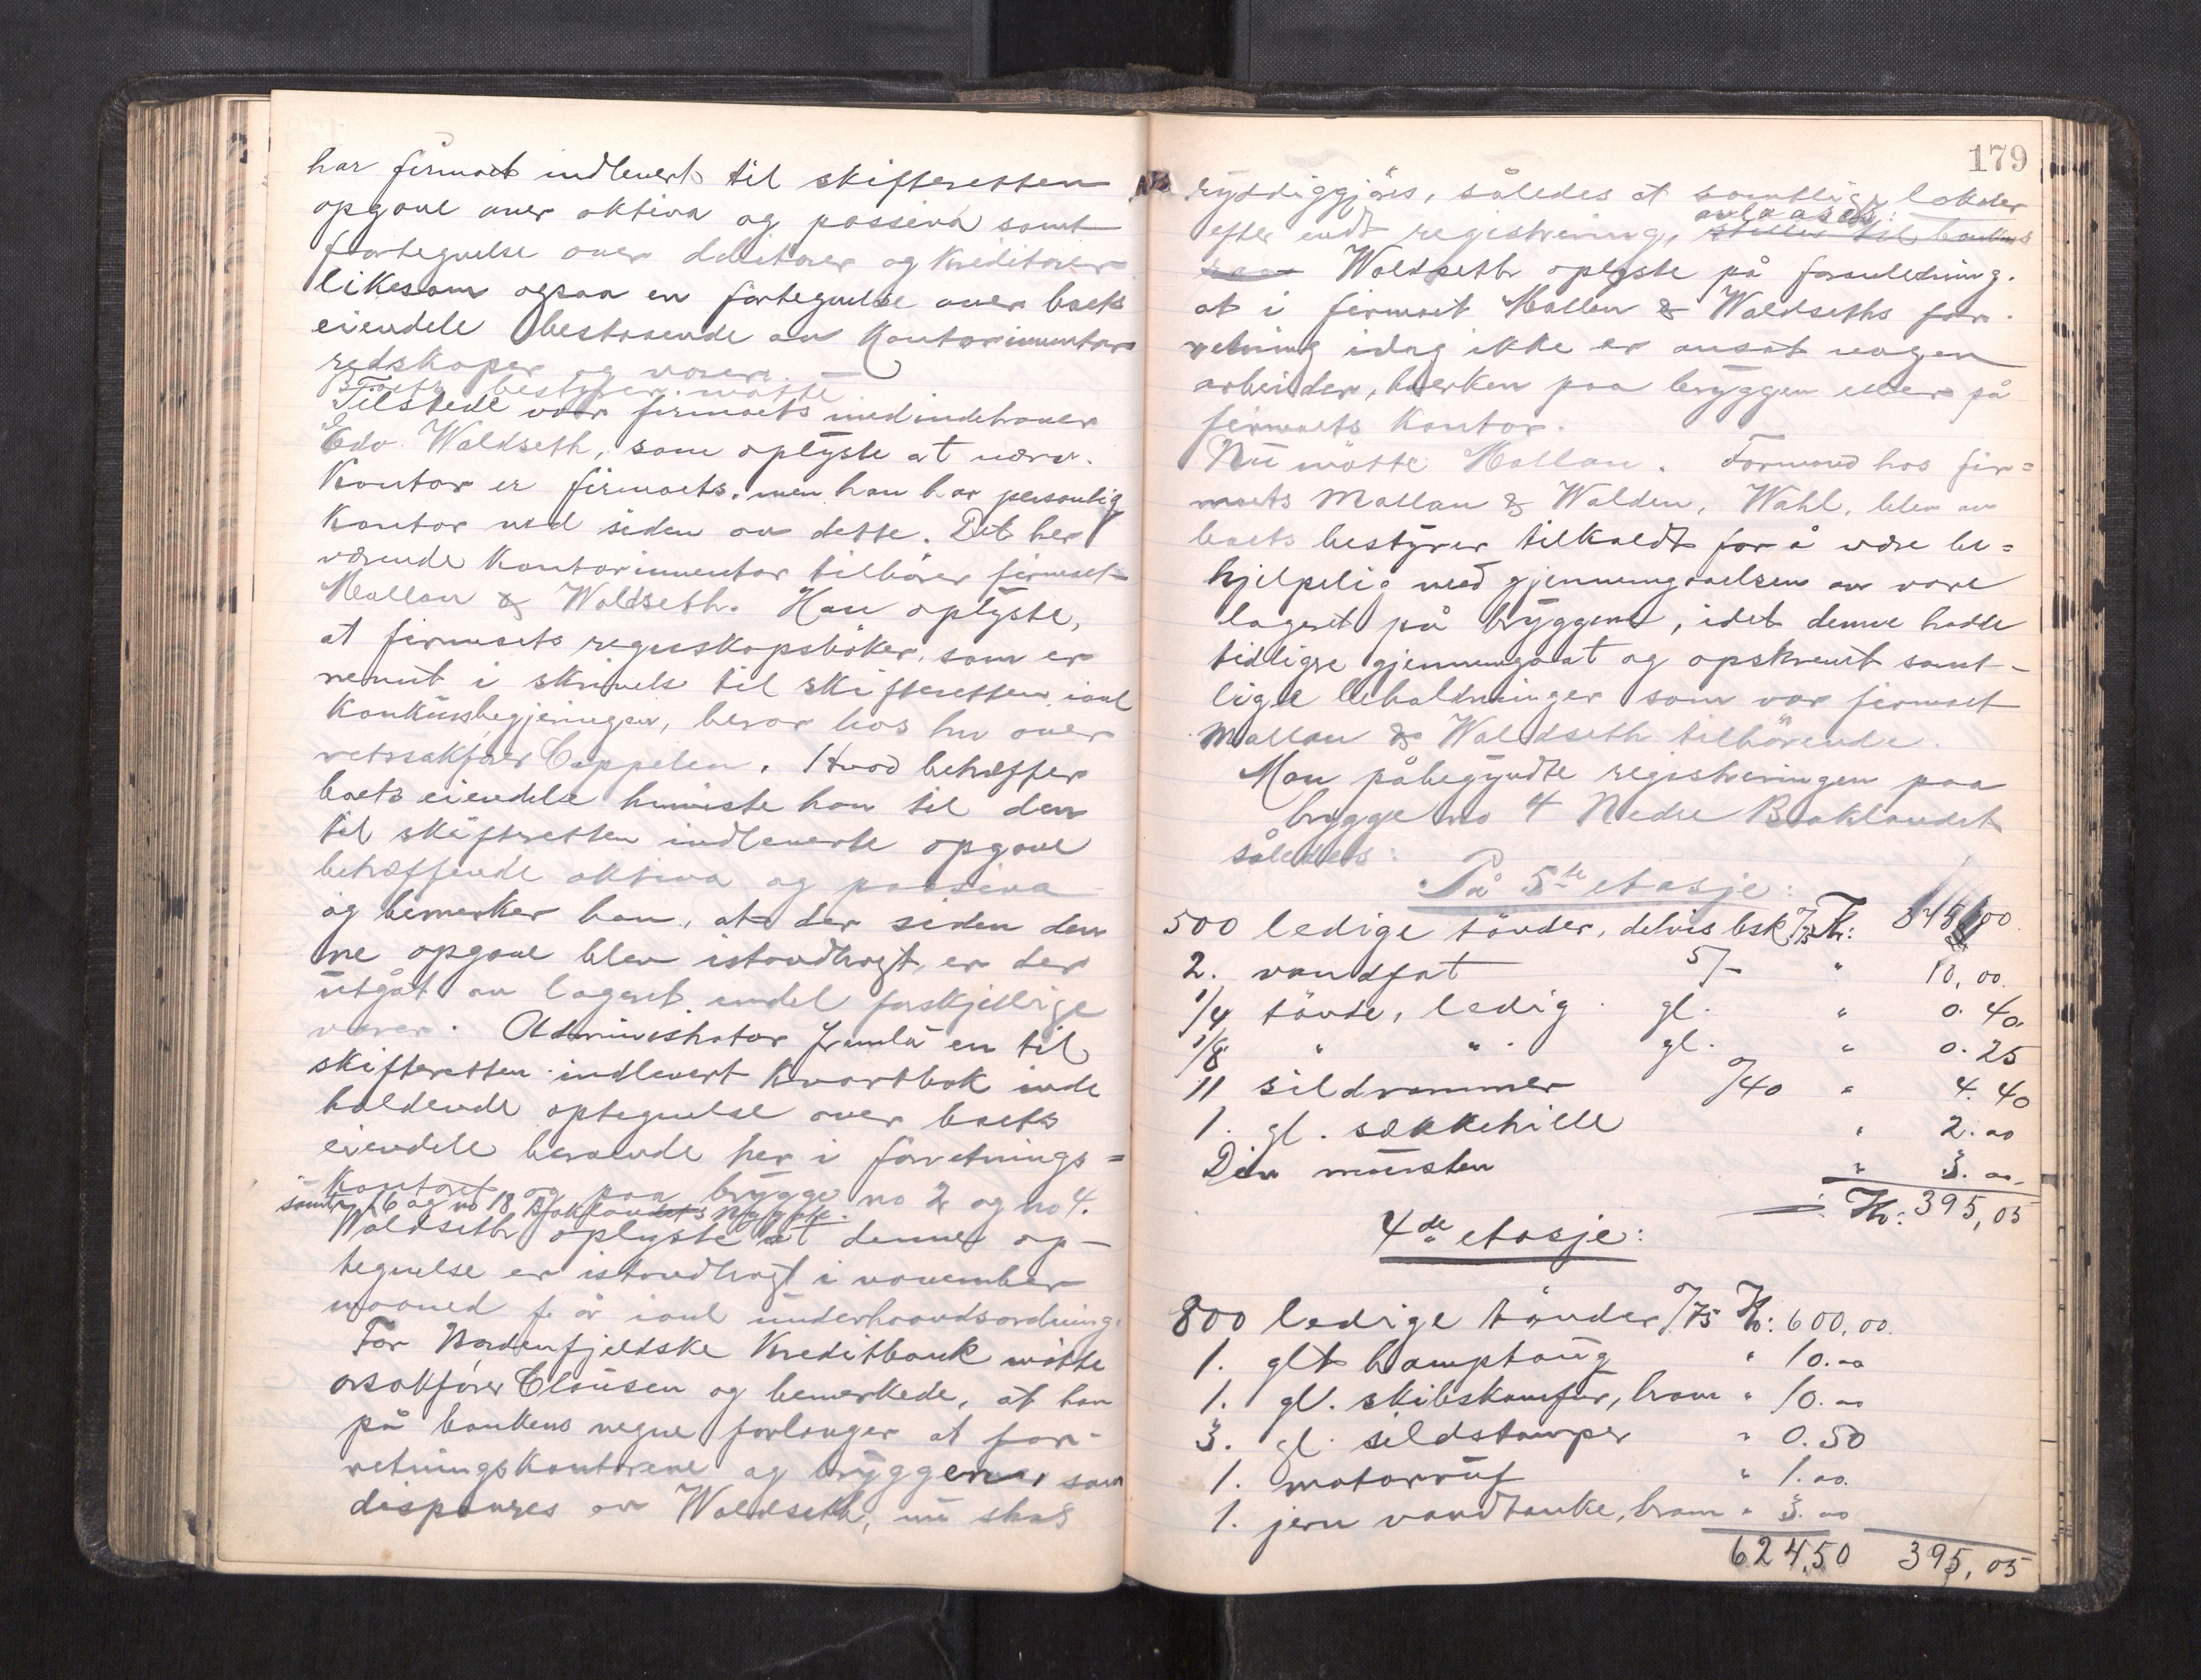 har firmaet indlevert til skifteretten
opgave over aktiva og passiva samt
fortegnelse over debitorer og kreditorer
likesom ogsaa en fortegnelse over boets
eiendele bestaaende av kontorinventar
redskaper og varer.
Boets bestyrer møtte
Tilstede var firmaets medindehaver
Edv. Waldseth, som oplyste at nærv.
kontor er firmaets, men han har personlig
kontor ved siden av dette. Det her
værende kontorinventar tilhører firmaet
Mallan & Waldseth. Han oplyste,
at firmaets regnskapsbøker, som er
nevnt i skrivelse til skifteretten, ioml
konkursbegjæringen, beror hos hr over
retssakfører Cappelen. Hvad betræffer
boets eiendele henviste han til den
til skifteretten indleverte opgave
betræffende aktiva og passiva
og bemerker han, at der siden den
ne opgave blev istandbragt, er der
utgåt av lageret endel forskjellige
varer. Administrator fremla en til
skifteretten indlevert kvartbok inde
holdende optegnelse over boets
eiendele beroende her i forretnings=
kontoret og paa brygge no 2 og no 4.
samt 16 og no 18 Baklandets
Waldseth oplyste at denne op-
tegnelse er istandbragt i november
maaned f. år ioml underhaandsordning.
For Nordenfjeldske Kreditbank møtte
orsakfører Clausen og bemerkede, at han
på bankens vegne forlanger at for-
retningskontorene og bryggene, som
disponres av Waldseth, nu skal
179
ryddiggjøres, således at samtlige lokaler
avlaases:
efter endt registrering, stilles til bankens
Waldseth oplyste på foranledning.
at i firmaet Mallan & Waldseths for-
retning idag ikke er ansat nogen
arbeider, hverken paa bryggen eller på
firmaets kontor.
Nu møtte Mallan. Formand hos fir=
maets Mallan & Walden, Wahl, blev av
boets bestyrer tilkaldt for å være be=
hjelpelig med gjennemgaaelsen av vare
lageret på bryggene, idet denne hadde
tidligre gjennemgaat og opskrevet samt-
lige beholdninger som var firmaet
Mallan & Waldseth tilhørende.
Man påbegyndte registreringen paa
brygge no 4 Nedre Baklandet
således:
På 5te etasje:
500 ledige tønder, delvis besk. /75 Kr: 375,00.
2. vandfat 5/- " 10,00.
1/4 tønde, ledig. gl. " 0.40
1/8 " " . gl. " 0.25
11 sildrammer /40 " 4.40
1. gl. sækkehille " 2.00
Div mursten " 3.00
Kr: 395,05
4de etasje:
800 ledige tønder /75 Kr: 600,00.
1. glt hamptaug " 10.00
1. gl. skibskomfur, bram " 10.00
3. gl. sildstamper " 0.50
1. motorruf " 1.00.
1. jern vandtanke, bram " 3.00
624,50 395,05